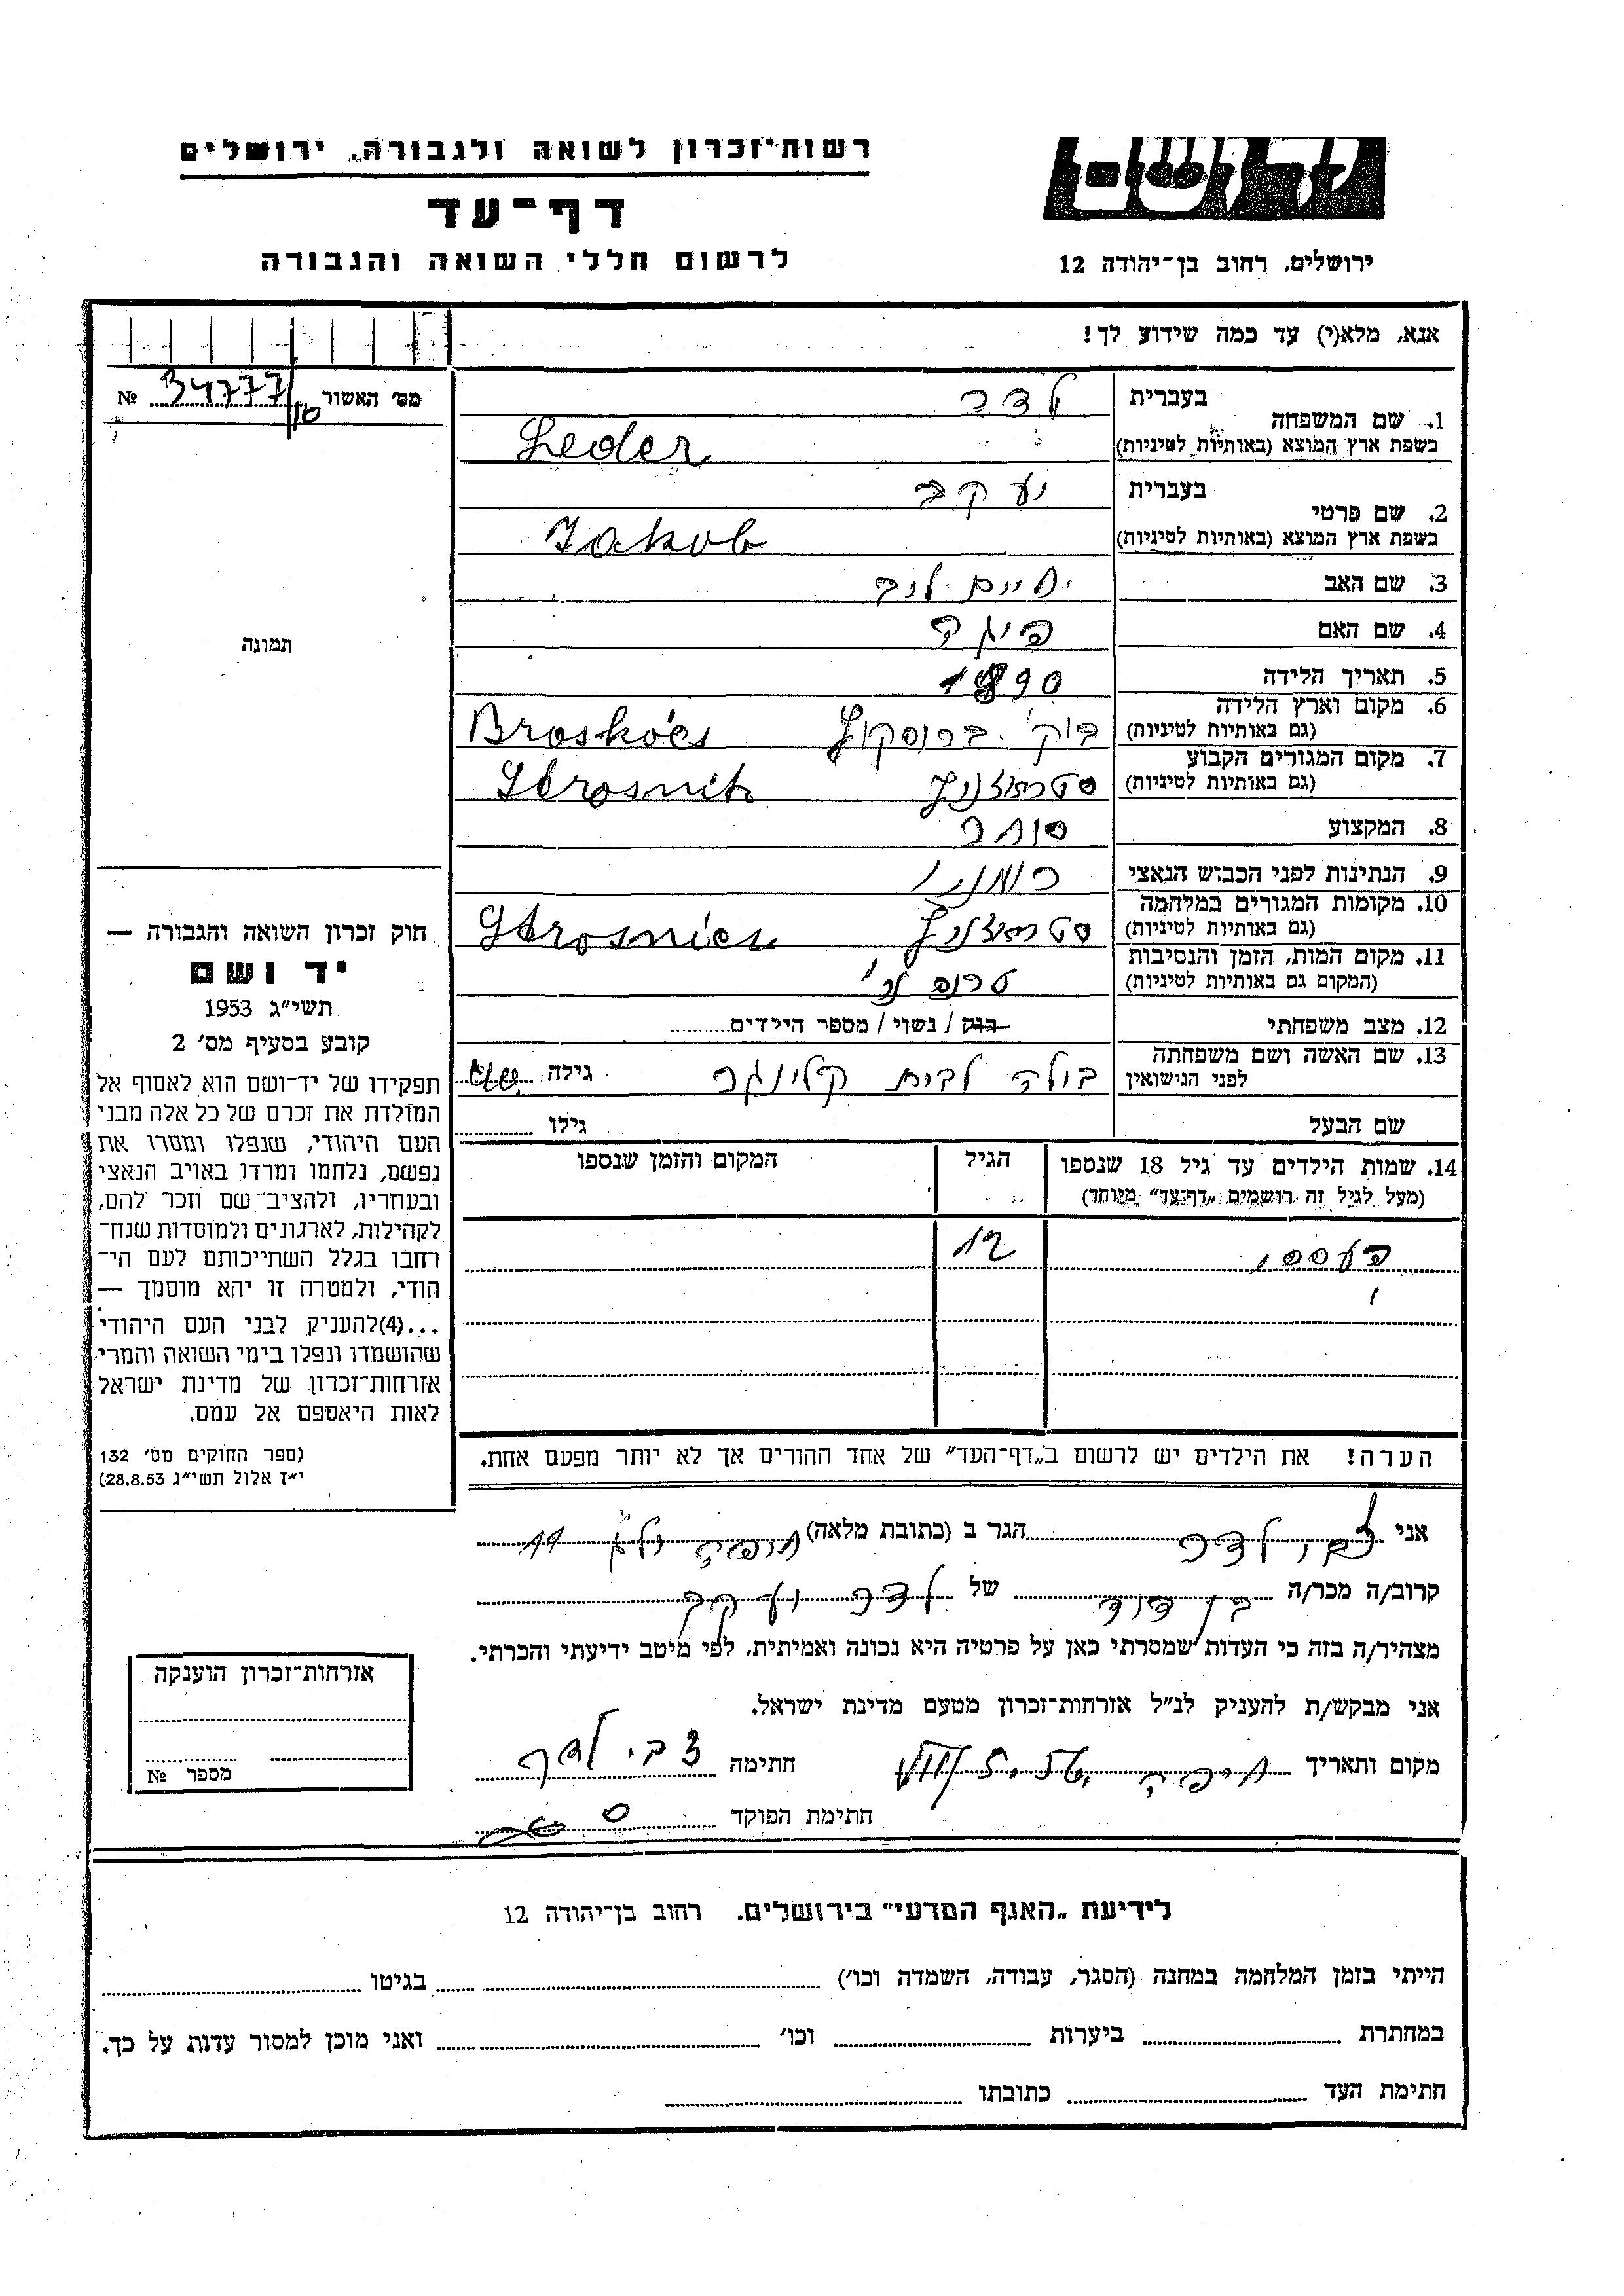 רשות־זכרון לשואה ולגבורה, ירושלים
דף־עד
לרשום חללי השואה והגבורה
יד ושם
ירושלים, רחוב בן־יהודה 12
אנא, מלא(י) עד כמה שידוע לך!
מס׳ האשור 34777/10 №
1. שם המשפחה
בעברית לדר
בשפת ארץ המוצא (באותיות לטיניות) Leder
2. שם פרטי
בעברית יעקב
בשפת ארץ המוצא (באותיות לטיניות) Jakob
3. שם האב חיים לייב
4. שם האם
5. תאריך הלידה 1890
6. מקום וארץ הלידה
(גם באותיות לטיניות) ברוסקוץ Broskóes
7. מקום המגורים הקבוע
(גם באותיות לטיניות) סטרוז׳ניץ
8. המקצוע סוחר
9. הנתינות לפני הכבוש הנאצי רומני
10. מקומות המגורים במלחמה
(גם באותיות לטיניות) סטרוז׳ניץ
11. מקום המות, הזמן והנסיבות
(המקום גם באותיות לטיניות) טרנסנ׳
12. מצב משפחתי רווק / נשוי / מספר הילדים
13. שם האשה ושם משפחתה
לפני הנישואין לבית קלינגר גילה
שם הבעל גילו
תמונה
חוק זכרון השואה והגבורה —
יד ושם
תשי״ג 1953
קובע בסעיף מס׳ 2
תפקידו של יד־ושם הוא לאסוף אל
המולדת את זכרם של כל אלה מבני
העם היהודי, שנפלו ומסרו את
נפשם, נלחמו ומרדו באויב הנאצי
ובעוזריו, ולהציב שם וזכר להם,
לקהילות, לארגונים ולמוסדות שנח־
רחבו בגלל השתייכותם לעם הי־
הודי, ולמטרה זו יהא מוסמך —
...(4)להעניק לבני העם היהודי
שהושמדו ונפלו בימי השואה והמרי
אזרחות־זכרון של מדינת ישראל
לאות היאספם אל עמם.
(ספר החוקים מס׳ 132
י״ז אלול תשי״ג 28.8.53)
14. שמות הילדים עד גיל 18 שנספו
(מעל לגיל זה רושמים „דף־עד״ מיוחד)
הגיל
המקום והזמן שנספו
12
הערה! את הילדים יש לרשום ב„דף־העד״ של אחד ההורים אך לא יותר מפעם אחת.
אני צבי לדר הגר ב (כתובת מלאה) חיפה
קרוב/ה מכר/ה בן דוד של לדר יעקב
מצהיר/ה בזה כי העדות שמסרתי כאן על פרטיה היא נכונה ואמיתית, לפי מיטב ידיעתי והכרתי.
אני מבקש/ת להעניק לנ״ל אזרחות־זכרון מטעם מדינת ישראל.
מקום ותאריך חיפה חתימה צבי לדר
חתימת הפוקד
אזרחות־זכרון הוענקה
מספר №
לידיעת „האגף המדעי״ בירושלים. רחוב בן־יהודה 12
הייתי בזמן המלחמה במחנה (הסגר, עבודה, השמדה וכו׳) בגיטו
במחתרת ביערות וכו׳ ואני מוכן למסור עדות על כך.
חתימת העד כתובתו